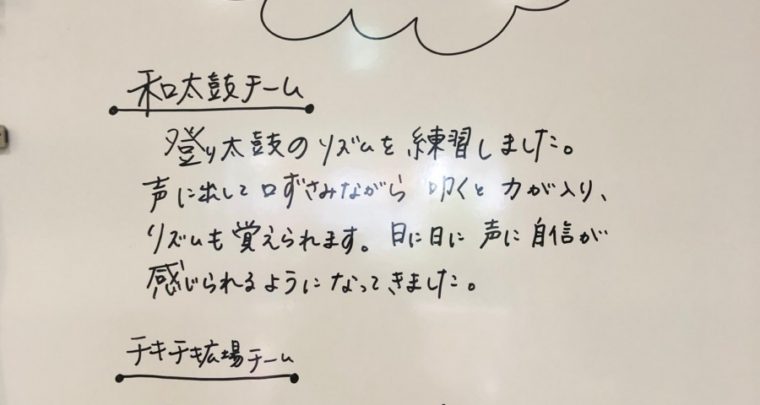 和太鼓チーム
登り太鼓のリズムを練習しました。
声に出して口ずさみながら 叩くと 力が入り、
リズムも覚えられます。日に日に 声に自信が
感じられるようになってきました。
チキチキ広場チーム